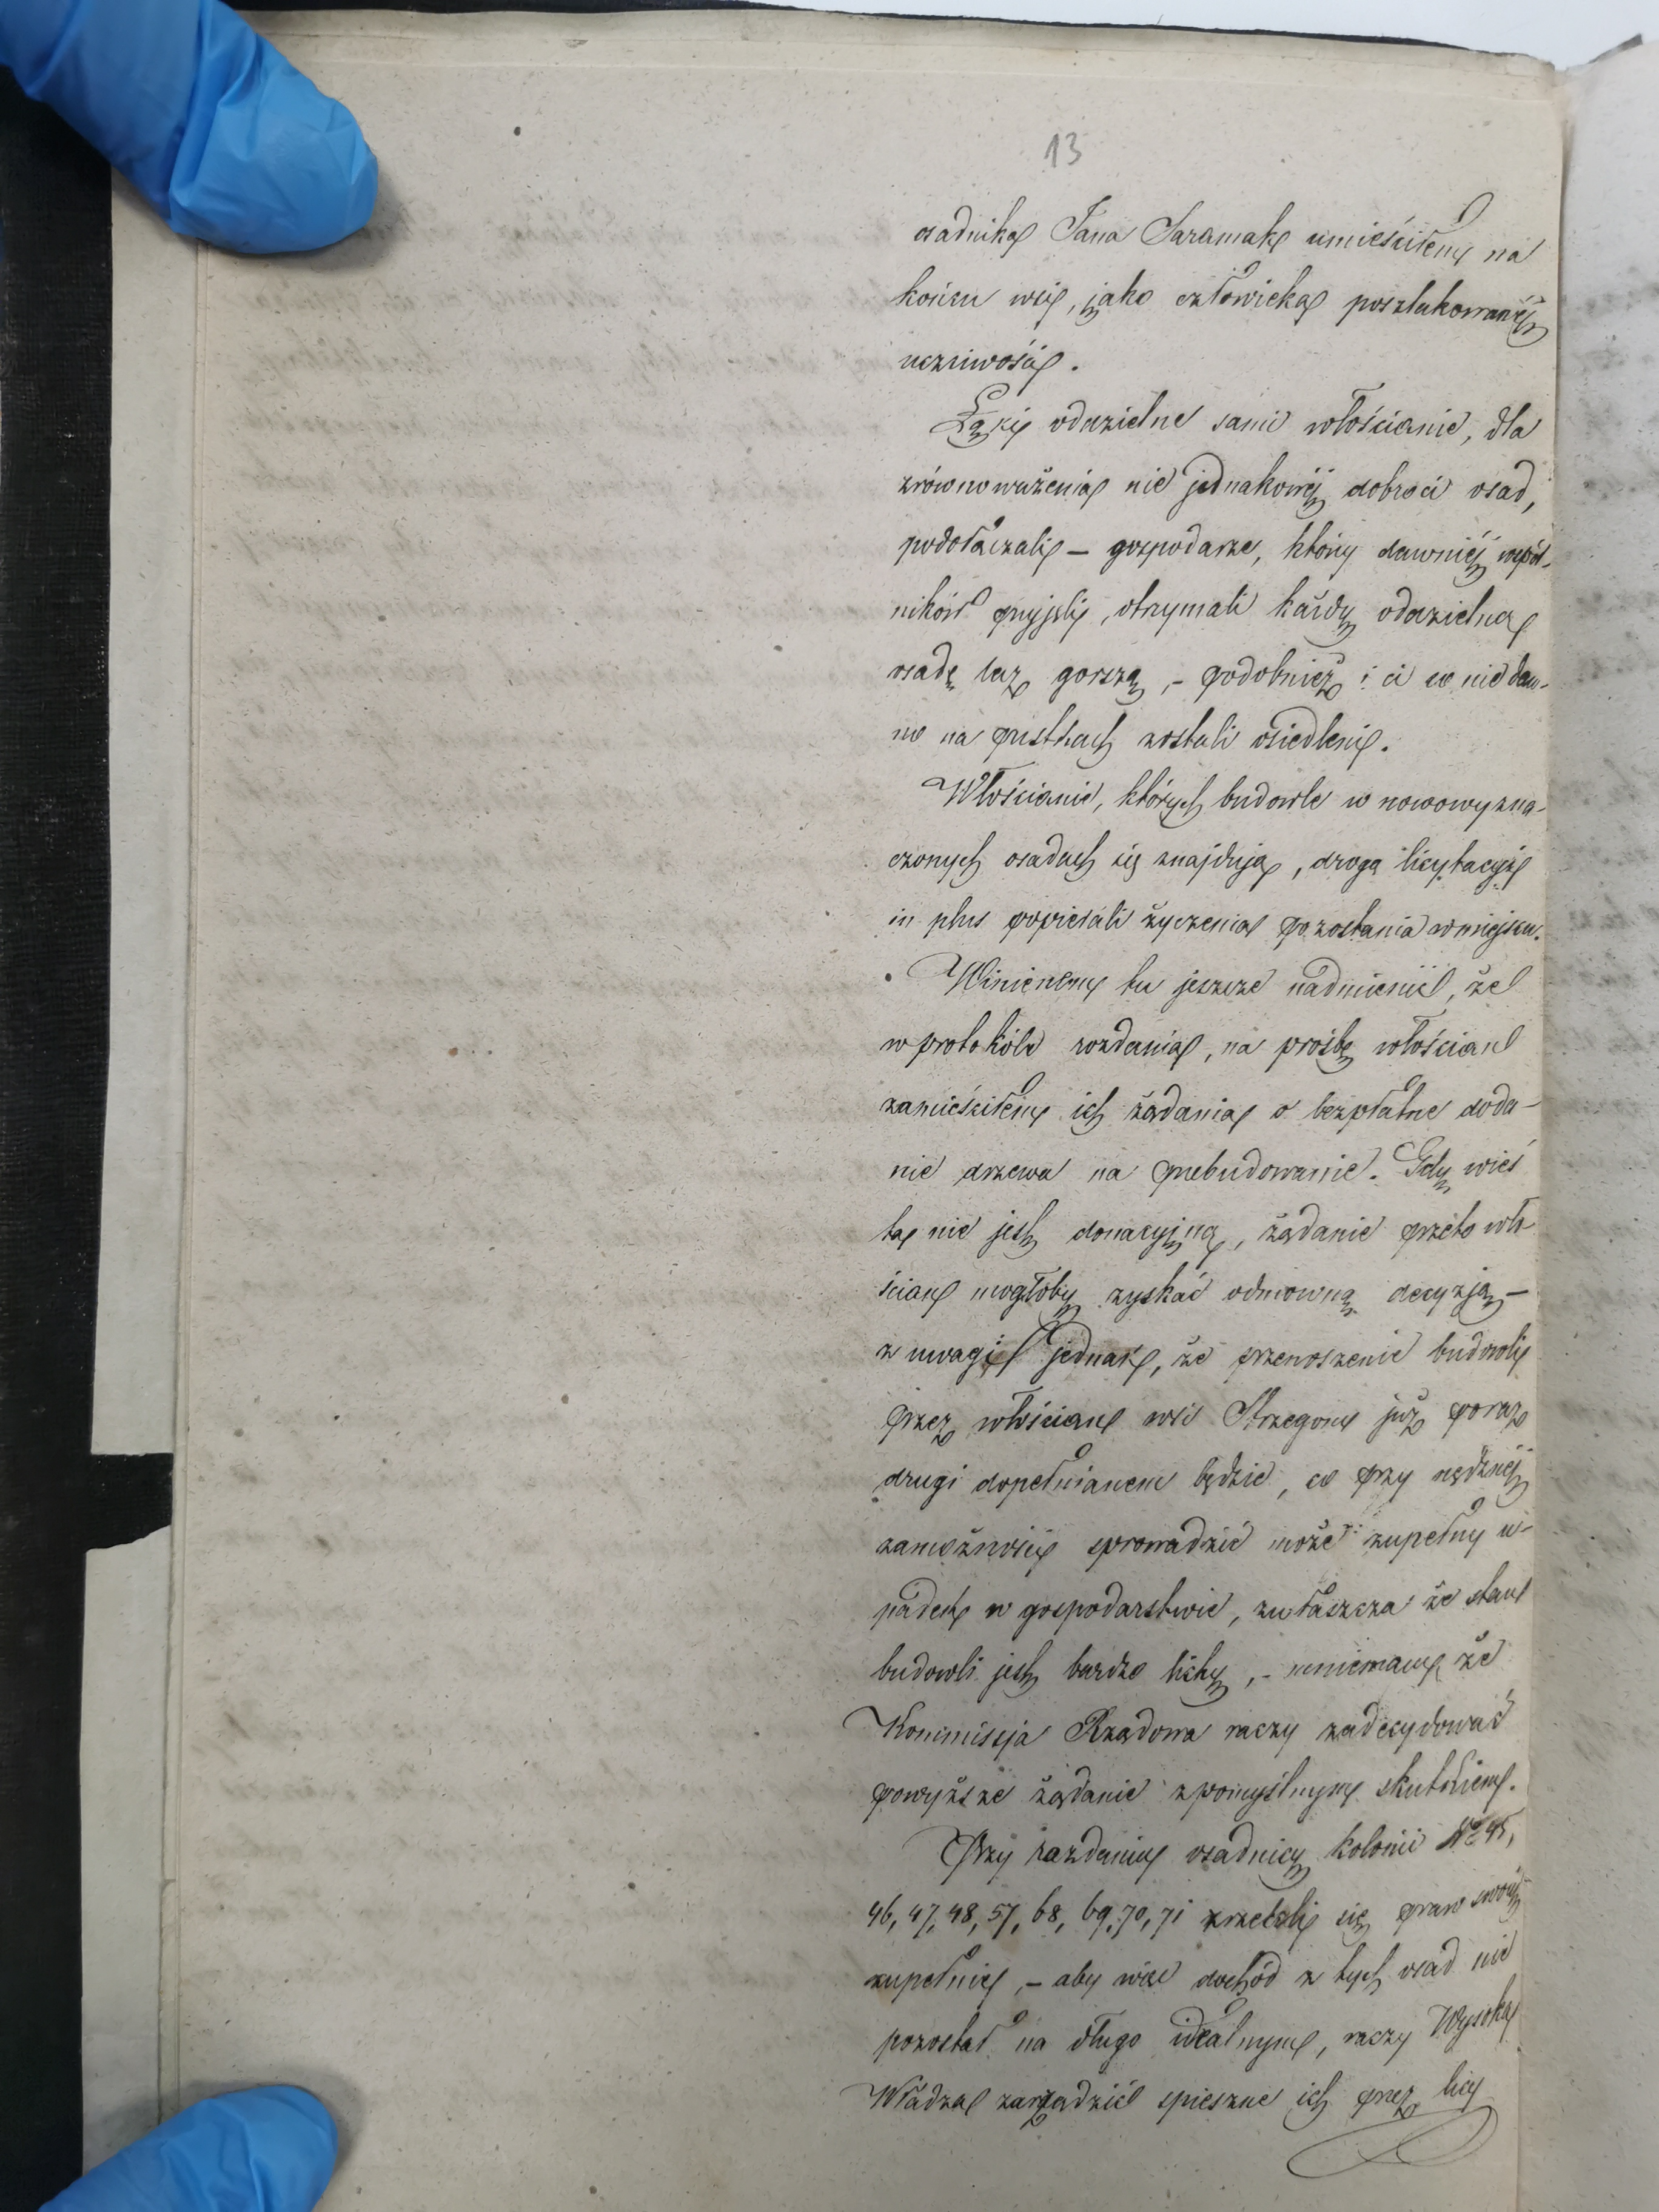 13
osadnika Jana Saramak umieściłem na
końcu wsi, jako człowieka poszlakowanéj
uczciwości.
Łąki oddzielne sami włościanie, dla
zrównoważenia nie jednakowéj dobroci osad,
podołączali – gospodarze, którzy dawniéj wspól-
ników przyjęli, otrzymali każdy oddzielną
osadę lecz gorszą, – podobnież i ci co nie daw-
no na pustkach zostali osiedleni.
Włościanie, których budowle w nowowyzna-
czonych osadach się znajdują, drogą licytacyi
in plus popierali życzenia pozostania w miejscu.
Winienem tu jeszcze nadmienić, że
w protokóle rozdania, na prośbę włościan
zamieściłem ich żądania o bezpłatne doda-
nie drzewa na przebudowanie. Gdy wieś
ta nie jest donacyjną, żądanie przeto wło-
ścian mogłoby zyskać odmowną decyzją –
z uwagi jednak, że przenoszenie budowli
przez włościan wsi Strzegom już poraz
drugi dopełnianem będzie, co przy nędznéj
zamożności sprowadzić może zupełny u-
padek w gospodarstwie, zwłaszcza że stan
budowli jest bardzo lichy, – mniemam, że
Kommissja Rządowa raczy zadecydować
powyższe żądanie z pomyślnym skutkiem.
Przy rozdaniu osadnicy kolonii No 45,
46, 47, 48, 57, 68, 69, 70, 71 zrzekli się praw swoich
zupełnie, – aby więc dochód z tych osad nie
pozostał na długo idealnym, raczy Wysoka
Władza zarządzić spieszne ich przez licy